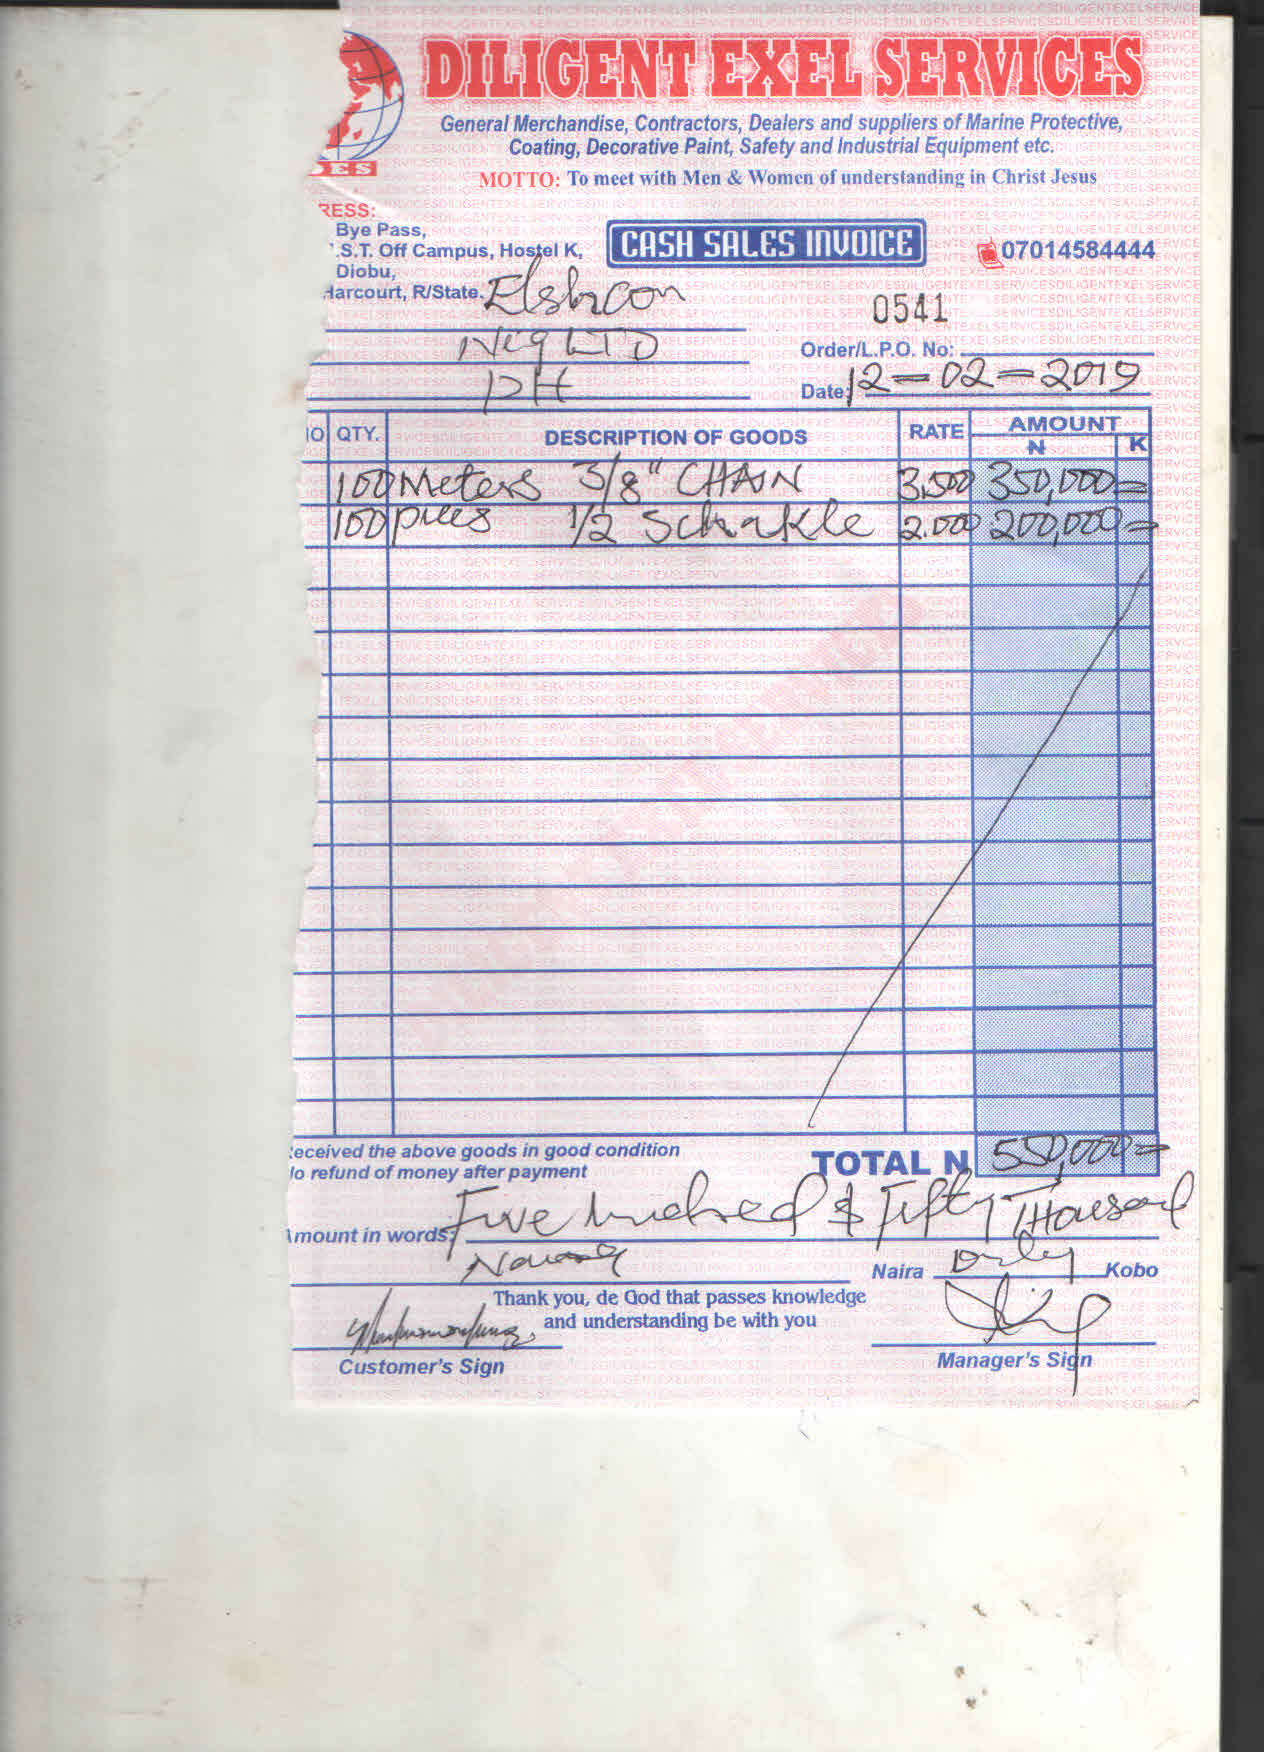 DILIGENT EXEL SERVICES
General Merchandise, Contractors, Dealers and suppliers of Marine Protective,
Coating, Decorative Paint, Safety and Industrial Equipment etc.
MOTTO: To meet with Men & Women of understanding in Christ Jesus
RESS:
Bye Pass,
.S.T. Off Campus, Hostel K,
Diobu,
Harcourt, R/State.
CASH SALES INVOICE
07014584444
Elshcon
Nig LTD
PH
0541
Order/L.P.O. No:
Date: 12-02-2019
NO QTY. DESCRIPTION OF GOODS RATE AMOUNT
N K
100 Meters 3/8" CHAIN 3,500 350,000=
100 1/2 Schakle 2.000 200,000=
Received the above goods in good condition
No refund of money after payment
TOTAL N 550,000=
Amount in words: Five hundred & Fifty Thousand
Naira Only Kobo
Thank you, de God that passes knowledge
and understanding be with you
Customer's Sign
Manager's Sign